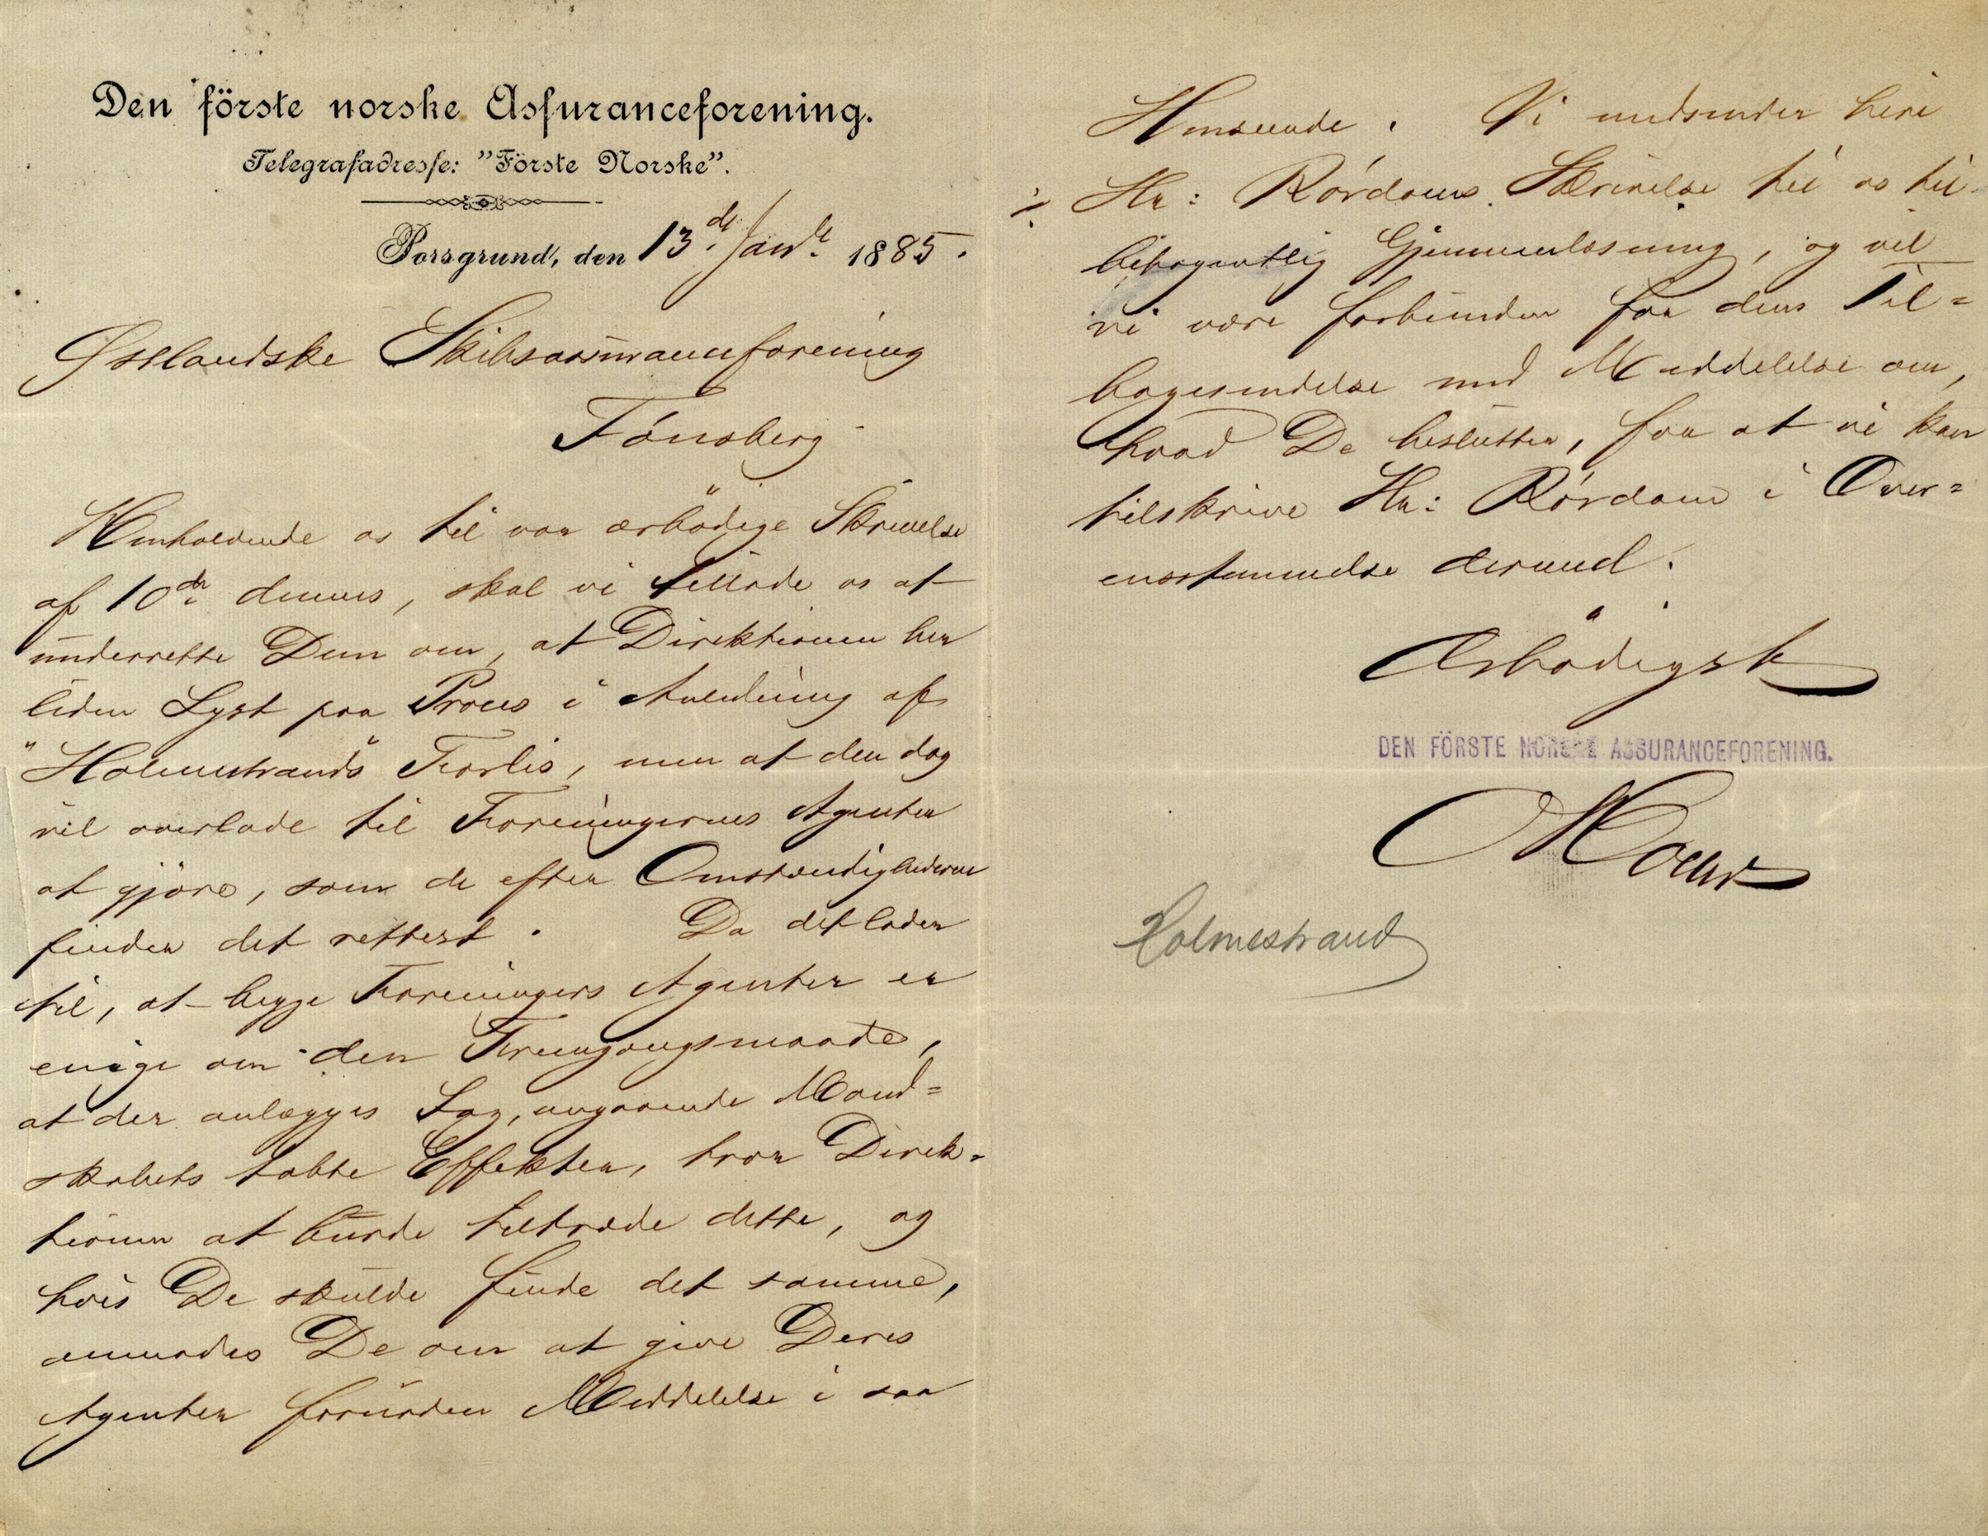 Den förste norske Assuranceforening.
Telegrafadresse: "Förste Norske".
Porsgrund, den 13de Janr. 1885.
Østlandske Skibsassuranceforening
Tønsberg
Henholdende os til vor ærbödige Skrivelse
af 10de dennes, skal vi tillade os at
underrette Dem om, at Direktionen her
liden Lyst paa Proces i Anledning af
"Holmestrands" Forlis, men at den dog
vil overlade til Foreningernes Agenter
at gjöre, som de efter Omstændighederne
finder det rettest. Da det lader
til, at begge Foreningers Agenter er
enige om den Fremgangsmaade,
at der anlægges Sag, angaaende Mand=
skabets tabte Effekter, tror Direk=
tionen at burde tiltræde dette, og
hvis De skulde finde det samme,
anmodes De om at give Deres
Agenter fornöden Meddelelse i saa
Henseende. Vi medsender hine
Hr: Rørdams Skrivelse til os til
behagentlig Gjennemlæsning, og vil
vi være forbunden for dens Til=
bagesendelse med Meddelelse om,
hvad De beslutter, for at vi kan
tilskrive Hr: Rørdam i Over=
ensstemmelse dermed.
Ærbödigst
DEN FÖRSTE NORSKE ASSURANCEFORENING.
Holmestrand